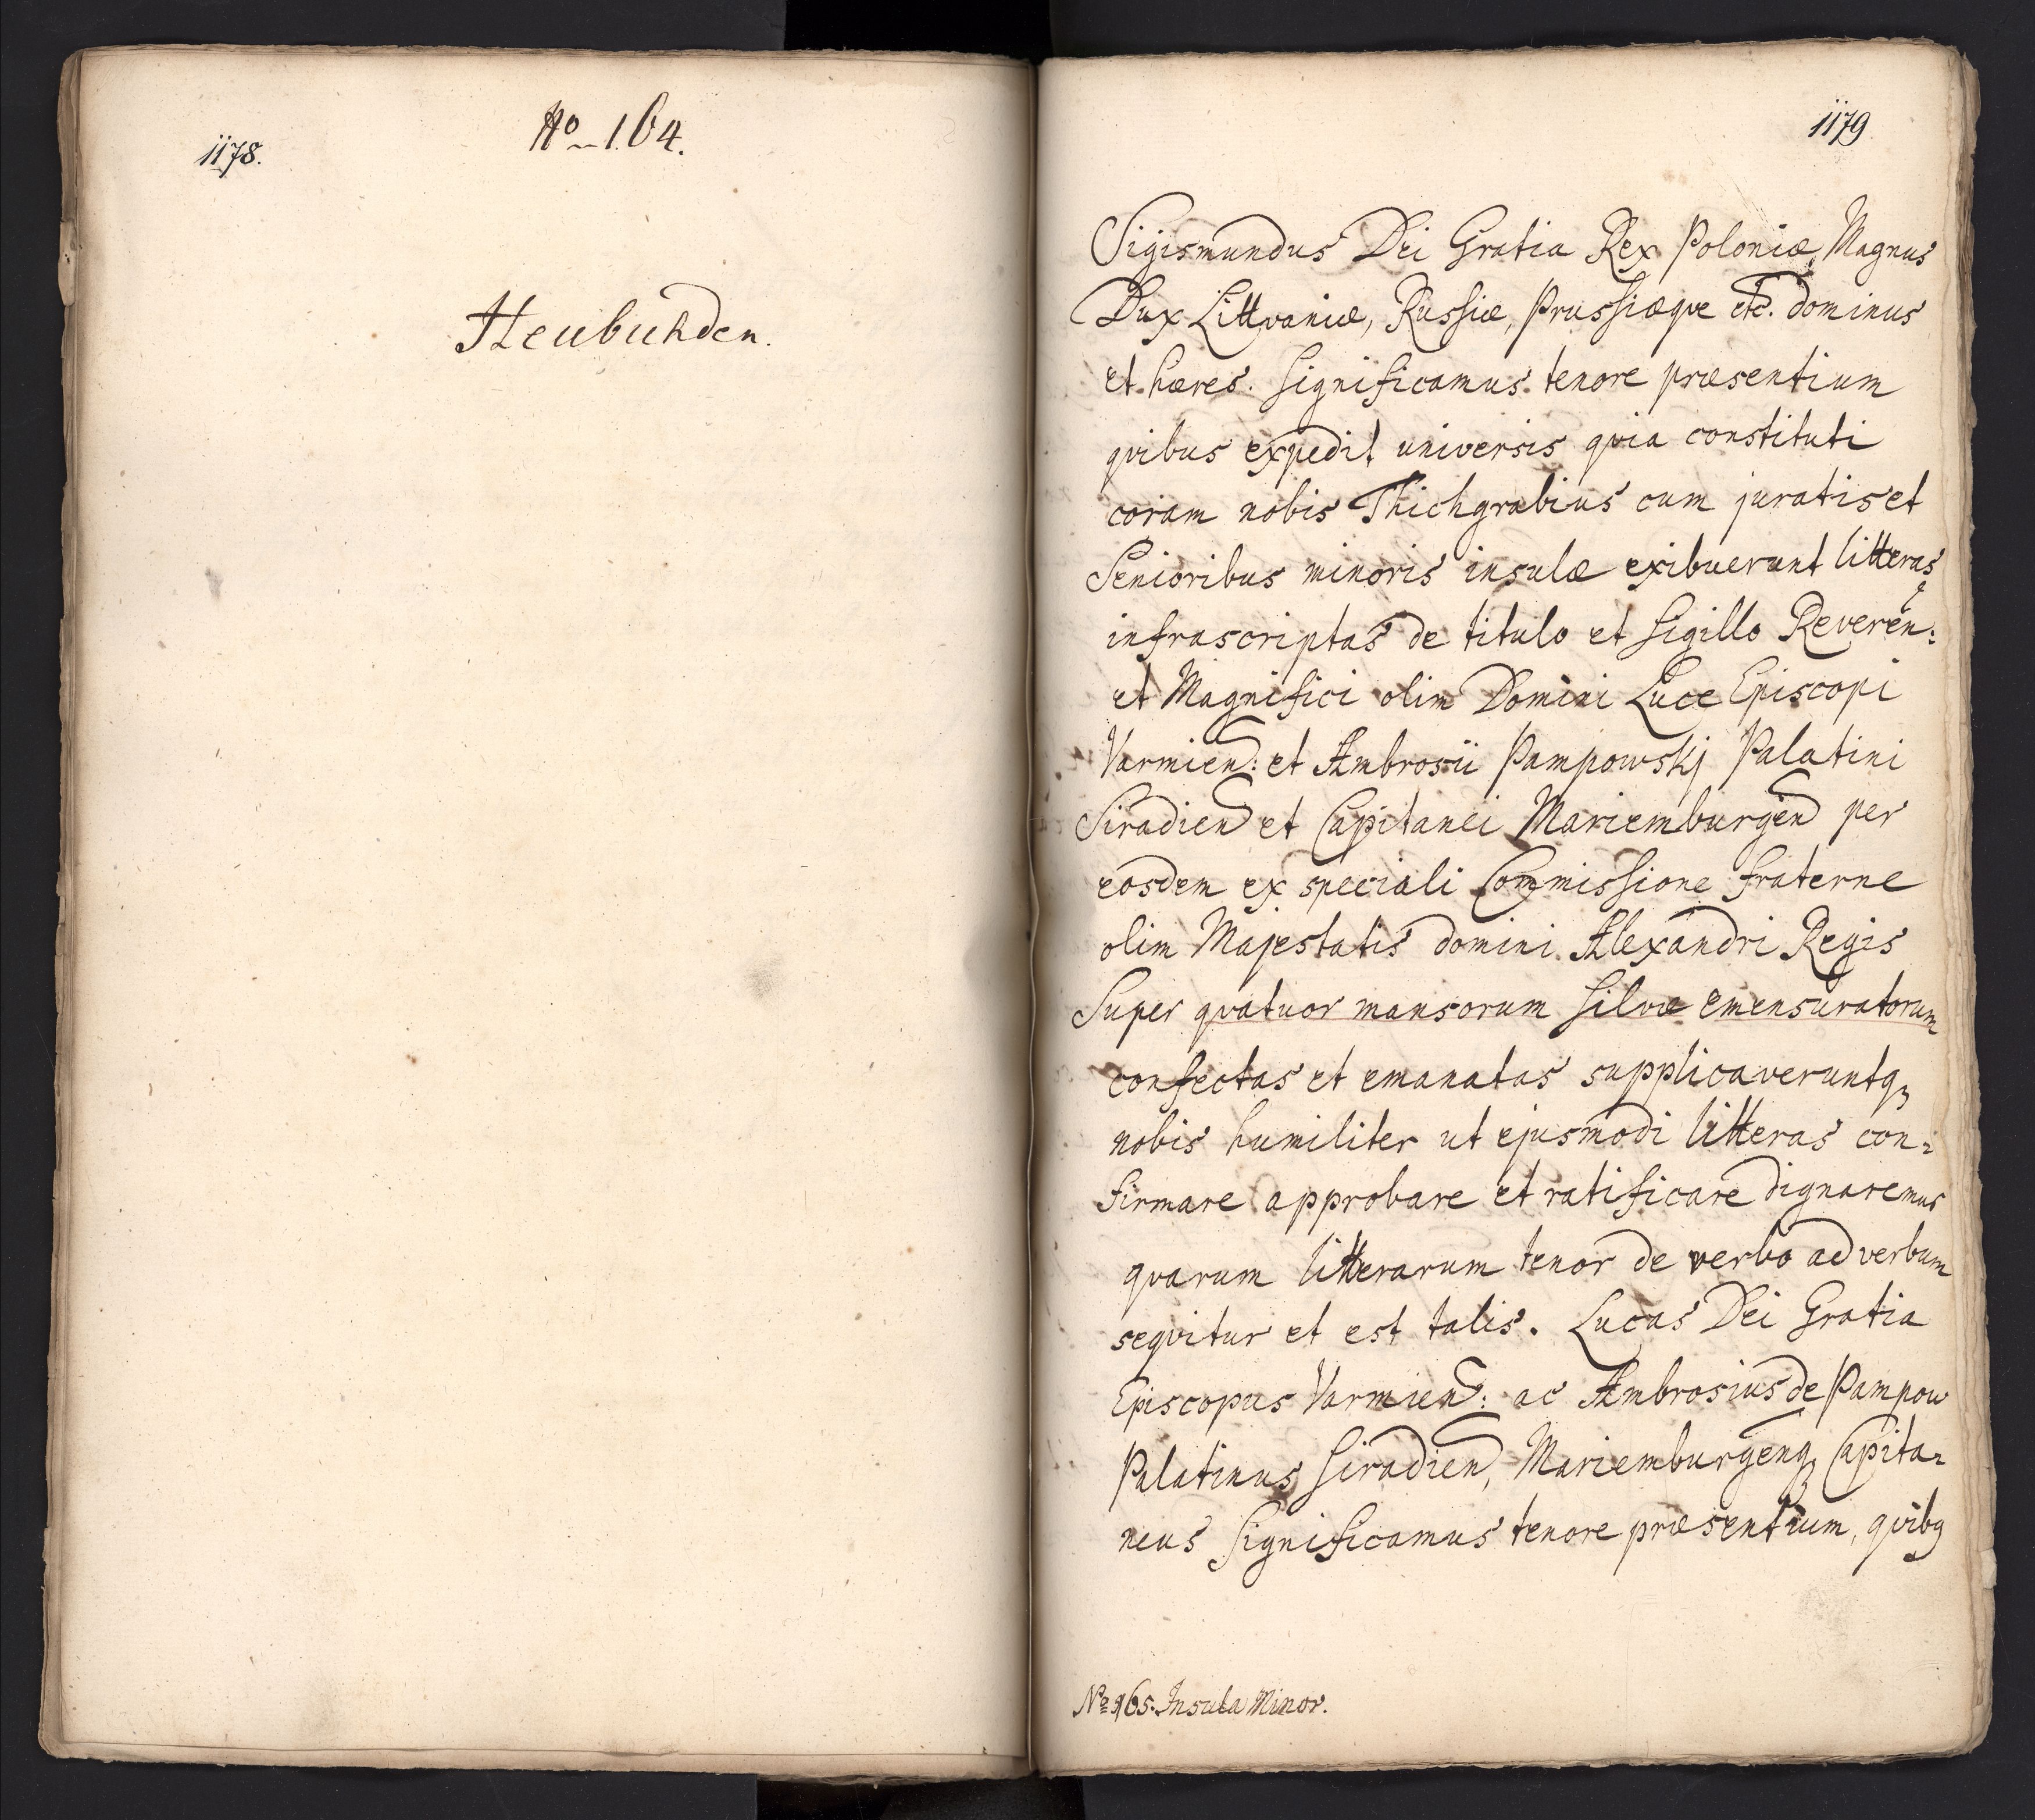 1178.
No 164.
Heubuhden.
1179
Sigismundus Dei Gratia Rex Poloniæ, Magnus
Dux Littvaniæ, Russiæ, Prussiæqve etc. dominus
et hæres. Significamus tenore præsentium
qvibus expedit universis qvia constituti
coram nobis Thichgrabius cum juratis et
Senioribus minoris insulæ exibuerunt litteras
infrascriptas de titulo et Sigillo Reveren:
et Magnifici olim Domini Luce Episcopi
Varmien: et Ambrosii Pampowskj Palatini
Siradien et Capitanei Mariemburgen per
eosdem ex speciali Commissione fraterne
olim Majestatis domini Alexandri Regis
Super qvatuor mansorum Silvæ emensuratorum
confectas et emanatas supplicaveruntq₃
nobis humiliter ut ejusmodi litteras con=
firmare approbare et ratificare dignaremus
qvarum litterarum tenor de verbo ad verbum
seqvitur et est talis. Lucas Dei Gratia
Episcopus Varmien: ac Ambrosius de Pampow
Palatinus Siradien, Mariemburgenq₃ Capita=
neus Significamus tenore præsentium, qvibq
No 165. Insula Minor.